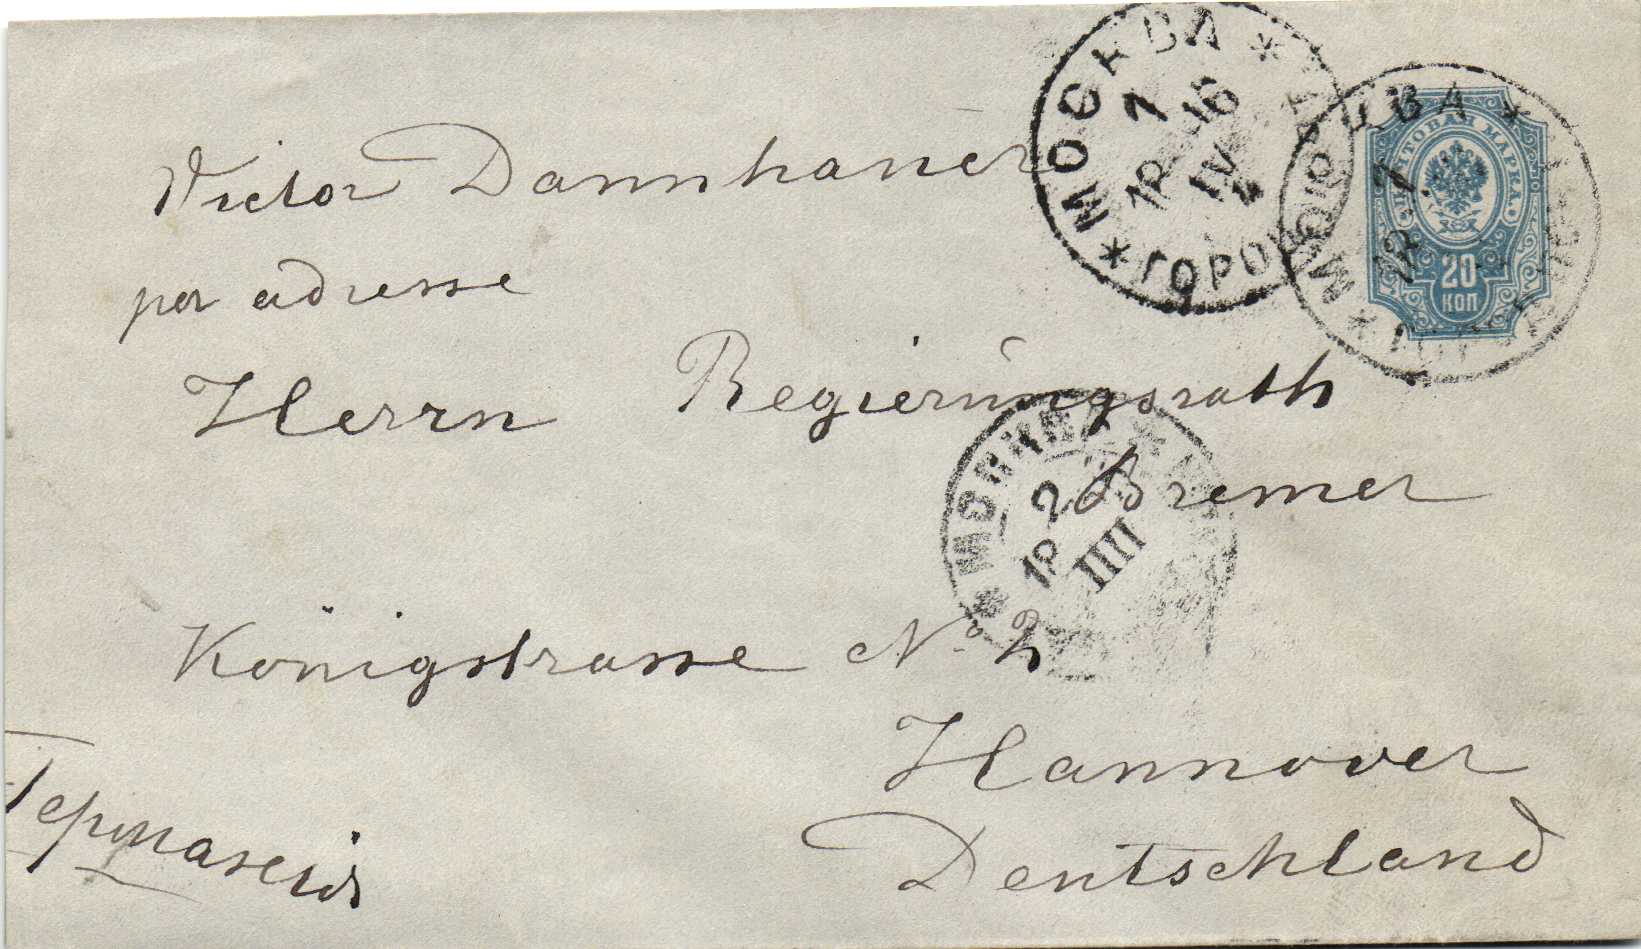 Victor Dannhauer
per adresse
Herrn Regierungsrath
Bremer
Königstrasse No 2
Hannover
Deutschland
Германія
МОСКВА
7
18 16
IV
ПОЧТОВАЯ МАРКА
20
КОП
7
18
МОСКВА
2
18
IIII